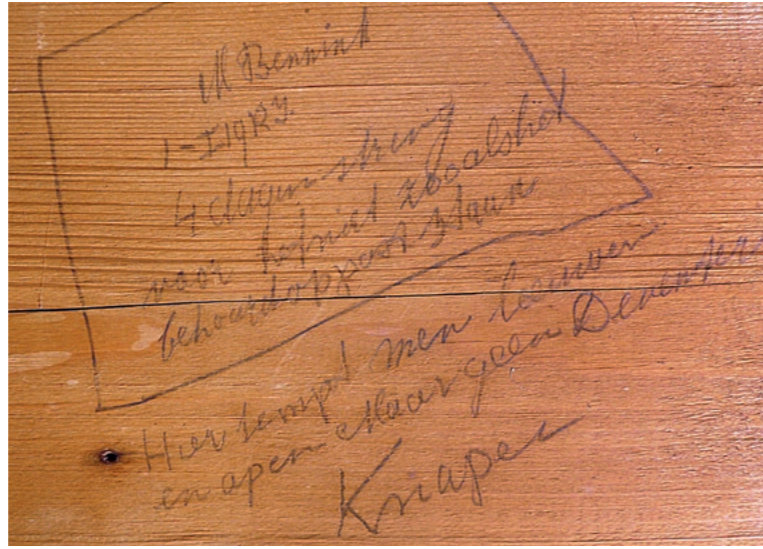 M Bennink
1-I 1923
4 dagen streng
voor het niet zooals het
behoord op post staan
Hier tempt men leeuwen
en apen Maar geen Deventer
Knapen